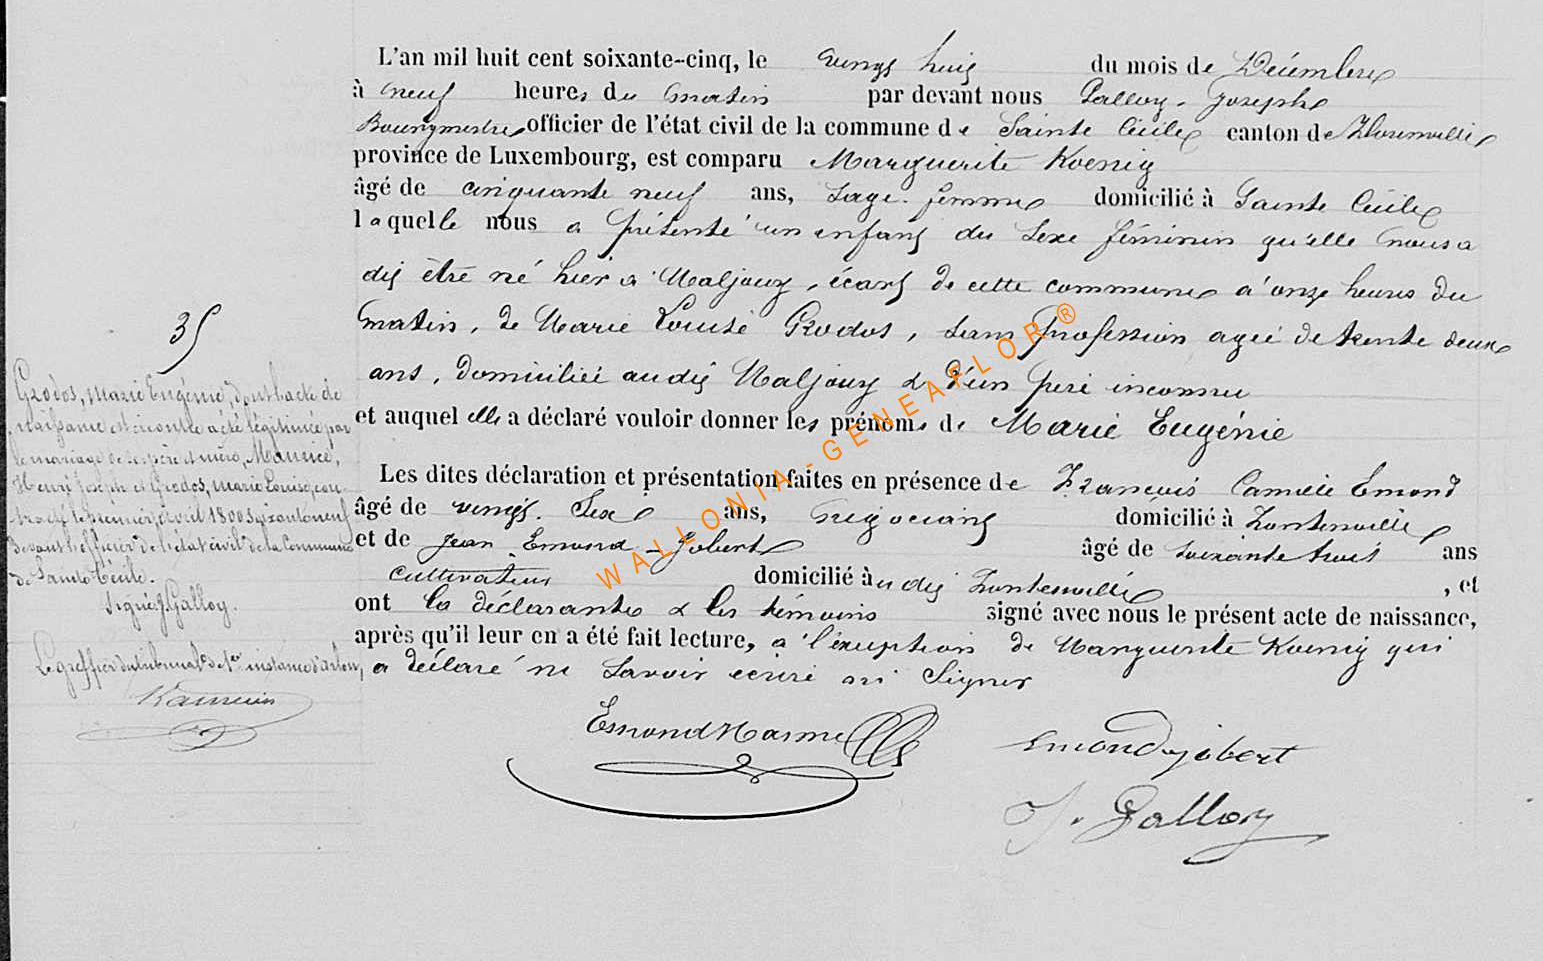 L'an mil huit cent soixante-cinq, le vingt huit du mois de Décembre
à neuf heures du matin par devant nous Galloy Joseph
Bourgmestre officier de l'état civil de la commune de Sainte Cécile canton de Florenville
province de Luxembourg, est comparu Marguerite Koenig
âgé de cinquante neuf ans, sage-femme domicilié à Sainte Cécile
laquelle nous a présenté un enfant du sexe féminin qu'elle nous a
dit être né hier à Naljoux, écart de cette commune à onze heures du
matin, de Marie Louise Grodos, sans profession agée de trente deux
ans, domiciliée audit Naljoux & d'un père inconnu
et auquel elle a déclaré vouloir donner les prénoms de Marie Eugénie
Les dites déclaration et présentation faites en présence de François Camille Emond
âgé de vingt-six ans, négociant domicilié à Fontenoille
et de Jean Emond-Jobert âgé de soixante trois ans
cultivateur domicilié àudit Fontenoille, et
ont la déclarante & les témoins signé avec nous le présent acte de naissance,
après qu'il leur en a été fait lecture, à l'éxception de Marguerite Koenig qui
a déclaré ne savoir écrire ni signer
Emond Marme
Emond jobert
J. Galloy
35
Grodos, Marie Eugénie, dont l'acte de
naissance est ci contre a été légitimée par
le mariage de ses père et mère, Maurice,
Henri Joseph et Grodos, Marie Louise, con-
tracté le premier avril 1800 soixante neuf
devant l'officier de l'état civil de la commune
de Sainte Cécile.
Signé J Galloy.
Le greffier du tribunal de 1re instance d'Arlon,
WALLONIA-GENEAFLOR®